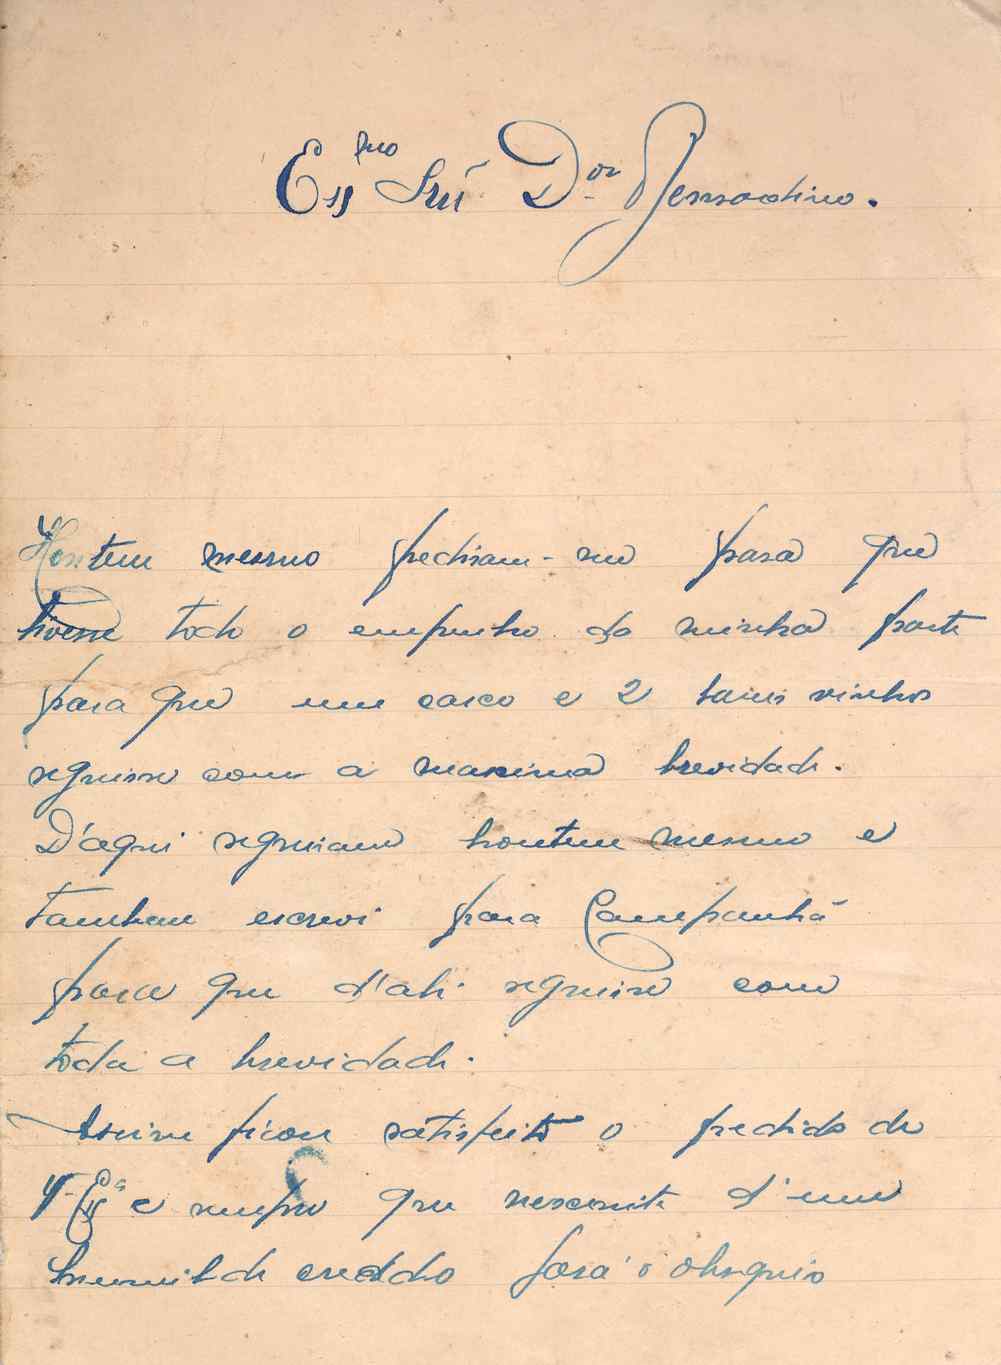 Exmo Snr. Dor Bernardino.
Hontem mesmo pediram-me para que
tivesse todo o empenho da minha parte
para que um casco e 2 vinhos
seguisse com a maxima brevidade.
D'aqui seguiram hontem mesmo e
tambem escrevi para Campanhã
para que d'ali seguisse com
toda a brevidade.
Assim ficou satisfeito o pedido de
V. Exa e sempre que nescessite d'um
humilde creado fará o obsequio